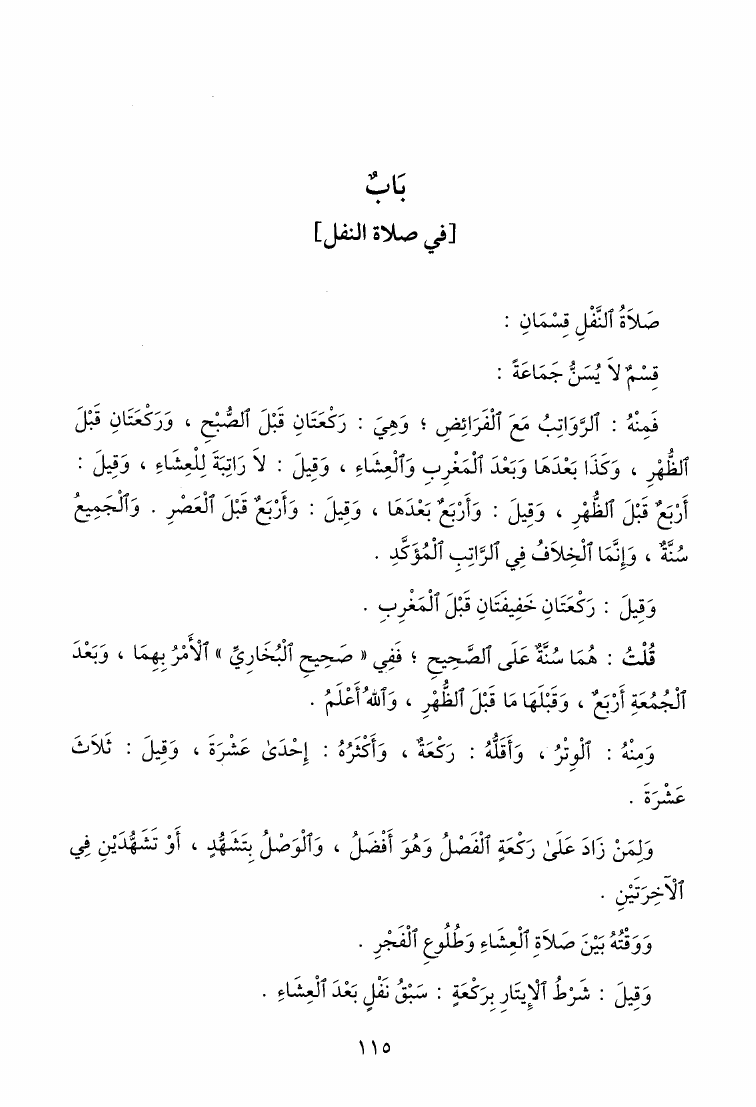 بَابٌ
[في صلاة النفل]
صَلاَةُ ٱلنَّفْلِ قِسْمَانِ :
قِسْمٌ لاَ يُسَنُّ جَمَاعَةً :
فَمِنْهُ : ٱلرَّوَاتِبُ مَعَ ٱلْفَرَائِضِ ؛ وَهِيَ : رَكْعَتَانِ قَبْلَ ٱلصُّبْحِ ، وَرَكْعَتَانِ قَبْلَ
ٱلظُّهْرِ ، وَكَذَا بَعْدَهَا وَبَعْدَ ٱلْمَغْرِبِ وَٱلْعِشَاءِ ، وَقِيلَ : لاَ رَاتِبَةَ لِلْعِشَاءِ ، وَقِيلَ :
أَرْبَعٌ قَبْلَ ٱلظُّهْرِ ، وَقِيلَ : وَأَرْبَعٌ بَعْدَهَا ، وَقِيلَ : وَأَرْبَعٌ قَبْلَ ٱلْعَصْرِ . وَٱلْجَمِيعُ
سُنَّةٌ ، وَإِنَّمَا ٱلْخِلاَفُ فِي ٱلرَّاتِبِ ٱلْمُؤَكَّدِ .
وَقِيلَ : رَكْعَتَانِ خَفِيفَتَانِ قَبْلَ ٱلْمَغْرِبِ .
قُلْتُ : هُمَا سُنَّةٌ عَلَى ٱلصَّحِيحِ ؛ فَفِي « صَحِيحِ ٱلْبُخَارِيِّ » ٱلأَمْرُ بِهِمَا ، وَبَعْدَ
ٱلْجُمُعَةِ أَرْبَعٌ ، وَقَبْلَهَا مَا قَبْلَ ٱلظُّهْرِ ، وَٱللهُ أَعْلَمُ .
وَمِنْهُ : ٱلْوِتْرُ ، وَأَقَلُّهُ : رَكْعَةٌ ، وَأَكْثَرُهُ : إِحْدَىٰ عَشْرَةَ ، وَقِيلَ : ثَلاَثَ
عَشْرَةَ .
وَلِمَنْ زَادَ عَلَىٰ رَكْعَةٍ ٱلْفَصْلُ وَهُوَ أَفْضَلُ ، وَٱلْوَصْلُ بِتَشَهُّدٍ ، أَوْ تَشَهُّدَيْنِ فِي
ٱلآخِرَتَيْنِ .
وَوَقْتُهُ بَيْنَ صَلاَةِ ٱلْعِشَاءِ وَطُلُوعِ ٱلْفَجْرِ .
وَقِيلَ : شَرْطُ ٱلإِيتَارِ بِرَكْعَةٍ : سَبْقُ نَفْلٍ بَعْدَ ٱلْعِشَاءِ .
١١٥